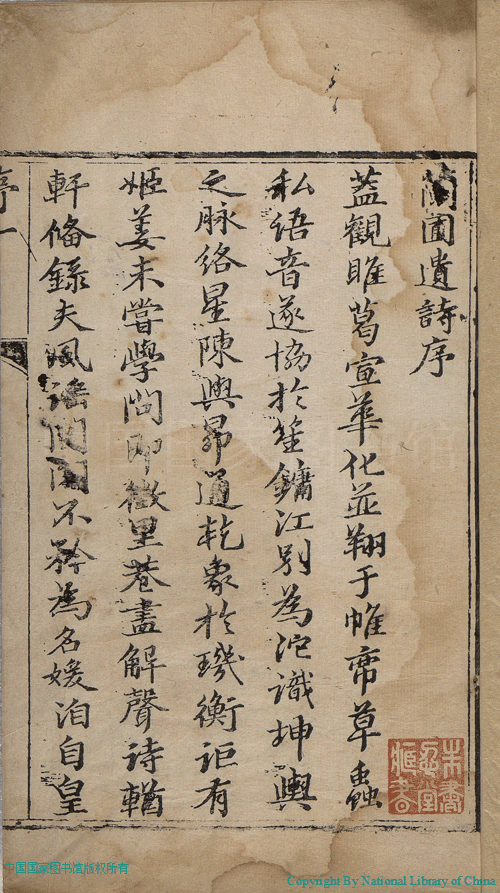 蘭圃遺詩序
葢觀雎葛宣華化並翔于帷帟草蟲
私語音遂協於笙鏞江別為沱識坤輿
之脉絡星陳與昴通乾象於璣衡詎有
姬姜未嘗學問即徵里巷盡解聲詩輶
軒俻錄夫風謡閨閣不矜為名媛洎自皇
序一
中国国家图书馆版权所有
Copyright By National Library of China